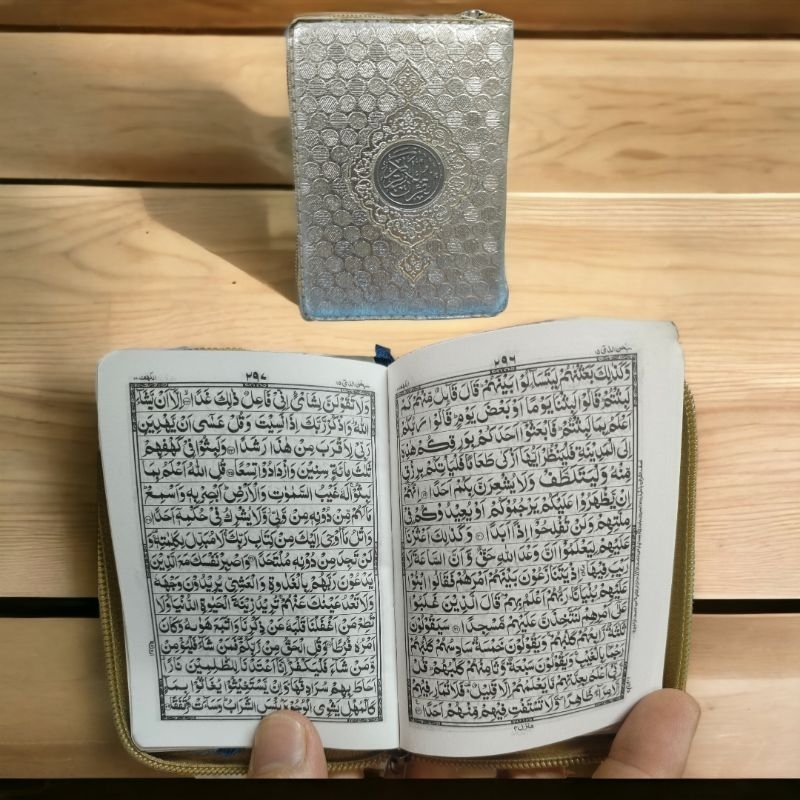 سبحن الذی ۱۵
۲۹۶
وَكَذٰلِكَ بَعَثْنٰهُمْ لِيَتَسَآءَلُوْا بَيْنَهُمْ ؕ قَالَ قَآئِلٌ مِّنْهُمْ كَمْ
لَبِثْتُمْ ؕ قَالُوْا لَبِثْنَا يَوْمًا اَوْ بَعْضَ يَوْمٍ ؕ قَالُوْا رَبُّكُمْ
اَعْلَمُ بِمَا لَبِثْتُمْ ؕ فَابْعَثُوْۤا اَحَدَكُمْ بِوَرِقِكُمْ هٰذِهٖۤ
اِلَى الْمَدِيْنَةِ فَلْيَنْظُرْ اَيُّهَاۤ اَزْكٰى طَعَامًا فَلْيَاْتِكُمْ بِرِزْقٍ
مِّنْهُ وَلْيَتَلَطَّفْ وَلَا يُشْعِرَنَّ بِكُمْ اَحَدًا ۝۱۹ اِنَّهُمْ
اِنْ يَّظْهَرُوْا عَلَيْكُمْ يَرْجُمُوْكُمْ اَوْ يُعِيْدُوْكُمْ فِيْ
مِلَّتِهِمْ وَلَنْ تُفْلِحُوْۤا اِذًا اَبَدًا ۝۲۰ وَكَذٰلِكَ اَعْثَرْنَا
عَلَيْهِمْ لِيَعْلَمُوْۤا اَنَّ وَعْدَ اللّٰهِ حَقٌّ وَّ اَنَّ السَّاعَةَ لَا
رَيْبَ فِيْهَا ۚ اِذْ يَتَنَازَعُوْنَ بَيْنَهُمْ اَمْرَهُمْ فَقَالُوا ابْنُوْا
عَلَيْهِمْ بُنْيَانًا ؕ رَبُّهُمْ اَعْلَمُ بِهِمْ ؕ قَالَ الَّذِيْنَ غَلَبُوْا
عَلٰۤى اَمْرِهِمْ لَنَتَّخِذَنَّ عَلَيْهِمْ مَّسْجِدًا ۝۲۱ سَيَقُوْلُوْنَ
ثَلٰثَةٌ رَّابِعُهُمْ كَلْبُهُمْ ۚ وَيَقُوْلُوْنَ خَمْسَةٌ سَادِسُهُمْ كَلْبُهُمْ
رَجْمًا بِالْغَيْبِ ۚ وَيَقُوْلُوْنَ سَبْعَةٌ وَّثَامِنُهُمْ كَلْبُهُمْ ؕ قُلْ
رَّبِّيْۤ اَعْلَمُ بِعِدَّتِهِمْ مَّا يَعْلَمُهُمْ اِلَّا قَلِيْلٌ ۬ فَلَا تُمَارِ فِيْهِمْ
اِلَّا مِرَآءً ظَاهِرًا ۪ وَّلَا تَسْتَفْتِ فِيْهِمْ مِّنْهُمْ اَحَدًا ۝۲۲
منزل ۴
سبحن الذی ۱۵
۲۹۷
الکهف ۱۸
وَلَا تَقُوْلَنَّ لِشَایْءٍ اِنِّيْ فَاعِلٌ ذٰلِكَ غَدًا ۝۲۳ اِلَّاۤ اَنْ يَّشَآءَ
اللّٰهُ ؗ وَاذْكُرْ رَّبَّكَ اِذَا نَسِيْتَ وَقُلْ عَسٰۤى اَنْ يَّهْدِيَنِ
رَبِّيْ لِاَقْرَبَ مِنْ هٰذَا رَشَدًا ۝۲۴ وَلَبِثُوْا فِيْ كَهْفِهِمْ
ثَلٰثَ مِائَةٍ سِنِيْنَ وَازْدَادُوْا تِسْعًا ۝۲۵ قُلِ اللّٰهُ اَعْلَمُ بِمَا
لَبِثُوْا ۚ لَهٗ غَيْبُ السَّمٰوٰتِ وَالْاَرْضِ ؕ اَبْصِرْ بِهٖ وَاَسْمِعْ ؕ
مَا لَهُمْ مِّنْ دُوْنِهٖ مِنْ وَّلِيٍّ ؗ وَّلَا يُشْرِكُ فِيْ حُكْمِهٖۤ اَحَدًا ۝۲۶
وَاتْلُ مَاۤ اُوْحِيَ اِلَيْكَ مِنْ كِتَابِ رَبِّكَ ؕ لَا مُبَدِّلَ لِكَلِمٰتِهٖ ۫ وَ
لَنْ تَجِدَ مِنْ دُوْنِهٖ مُلْتَحَدًا ۝۲۷ وَاصْبِرْ نَفْسَكَ مَعَ الَّذِيْنَ
يَدْعُوْنَ رَبَّهُمْ بِالْغَدٰوةِ وَالْعَشِيِّ يُرِيْدُوْنَ وَجْهَهٗ
وَلَا تَعْدُ عَيْنٰكَ عَنْهُمْ ۚ تُرِيْدُ زِيْنَةَ الْحَيٰوةِ الدُّنْيَا ۚ وَلَا
تُطِعْ مَنْ اَغْفَلْنَا قَلْبَهٗ عَنْ ذِكْرِنَا وَاتَّبَعَ هَوٰىهُ وَكَانَ
اَمْرُهٗ فُرُطًا ۝۲۸ وَقُلِ الْحَقُّ مِنْ رَّبِّكُمْ ۫ فَمَنْ شَآءَ فَلْيُؤْمِنْ
وَّمَنْ شَآءَ فَلْيَكْفُرْ ۙ اِنَّاۤ اَعْتَدْنَا لِلظّٰلِمِيْنَ نَارًا ۙ
اَحَاطَ بِهِمْ سُرَادِقُهَا ؕ وَاِنْ يَّسْتَغِيْثُوْا يُغَاثُوْا بِمَآءٍ
كَالْمُهْلِ يَشْوِى الْوُجُوْهَ ؕ بِئْسَ الشَّرَابُ ؕ وَسَآءَتْ مُرْتَفَقًا ۝۲۹